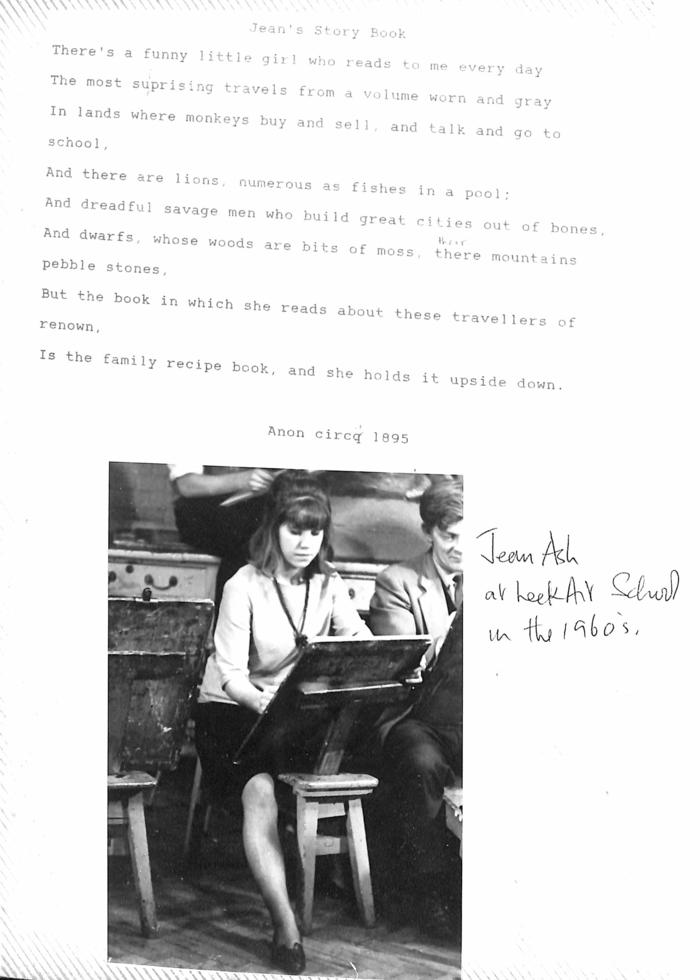 Jean's Story Book
There's a funny little girl who reads to me every day
The most suprising travels from a volume worn and gray
In lands where monkeys buy and sell, and talk and go to
school,
And there are lions, numerous as fishes in a pool;
And dreadful savage men who build great cities out of bones,
their
And dwarfs, whose woods are bits of moss, there mountains
pebble stones,
But the book in which she reads about these travellers of
renown,
Is the family recipe book, and she holds it upside down.
Anon circa 1895
Jean Ash
at Leek Art School
in the 1960's.